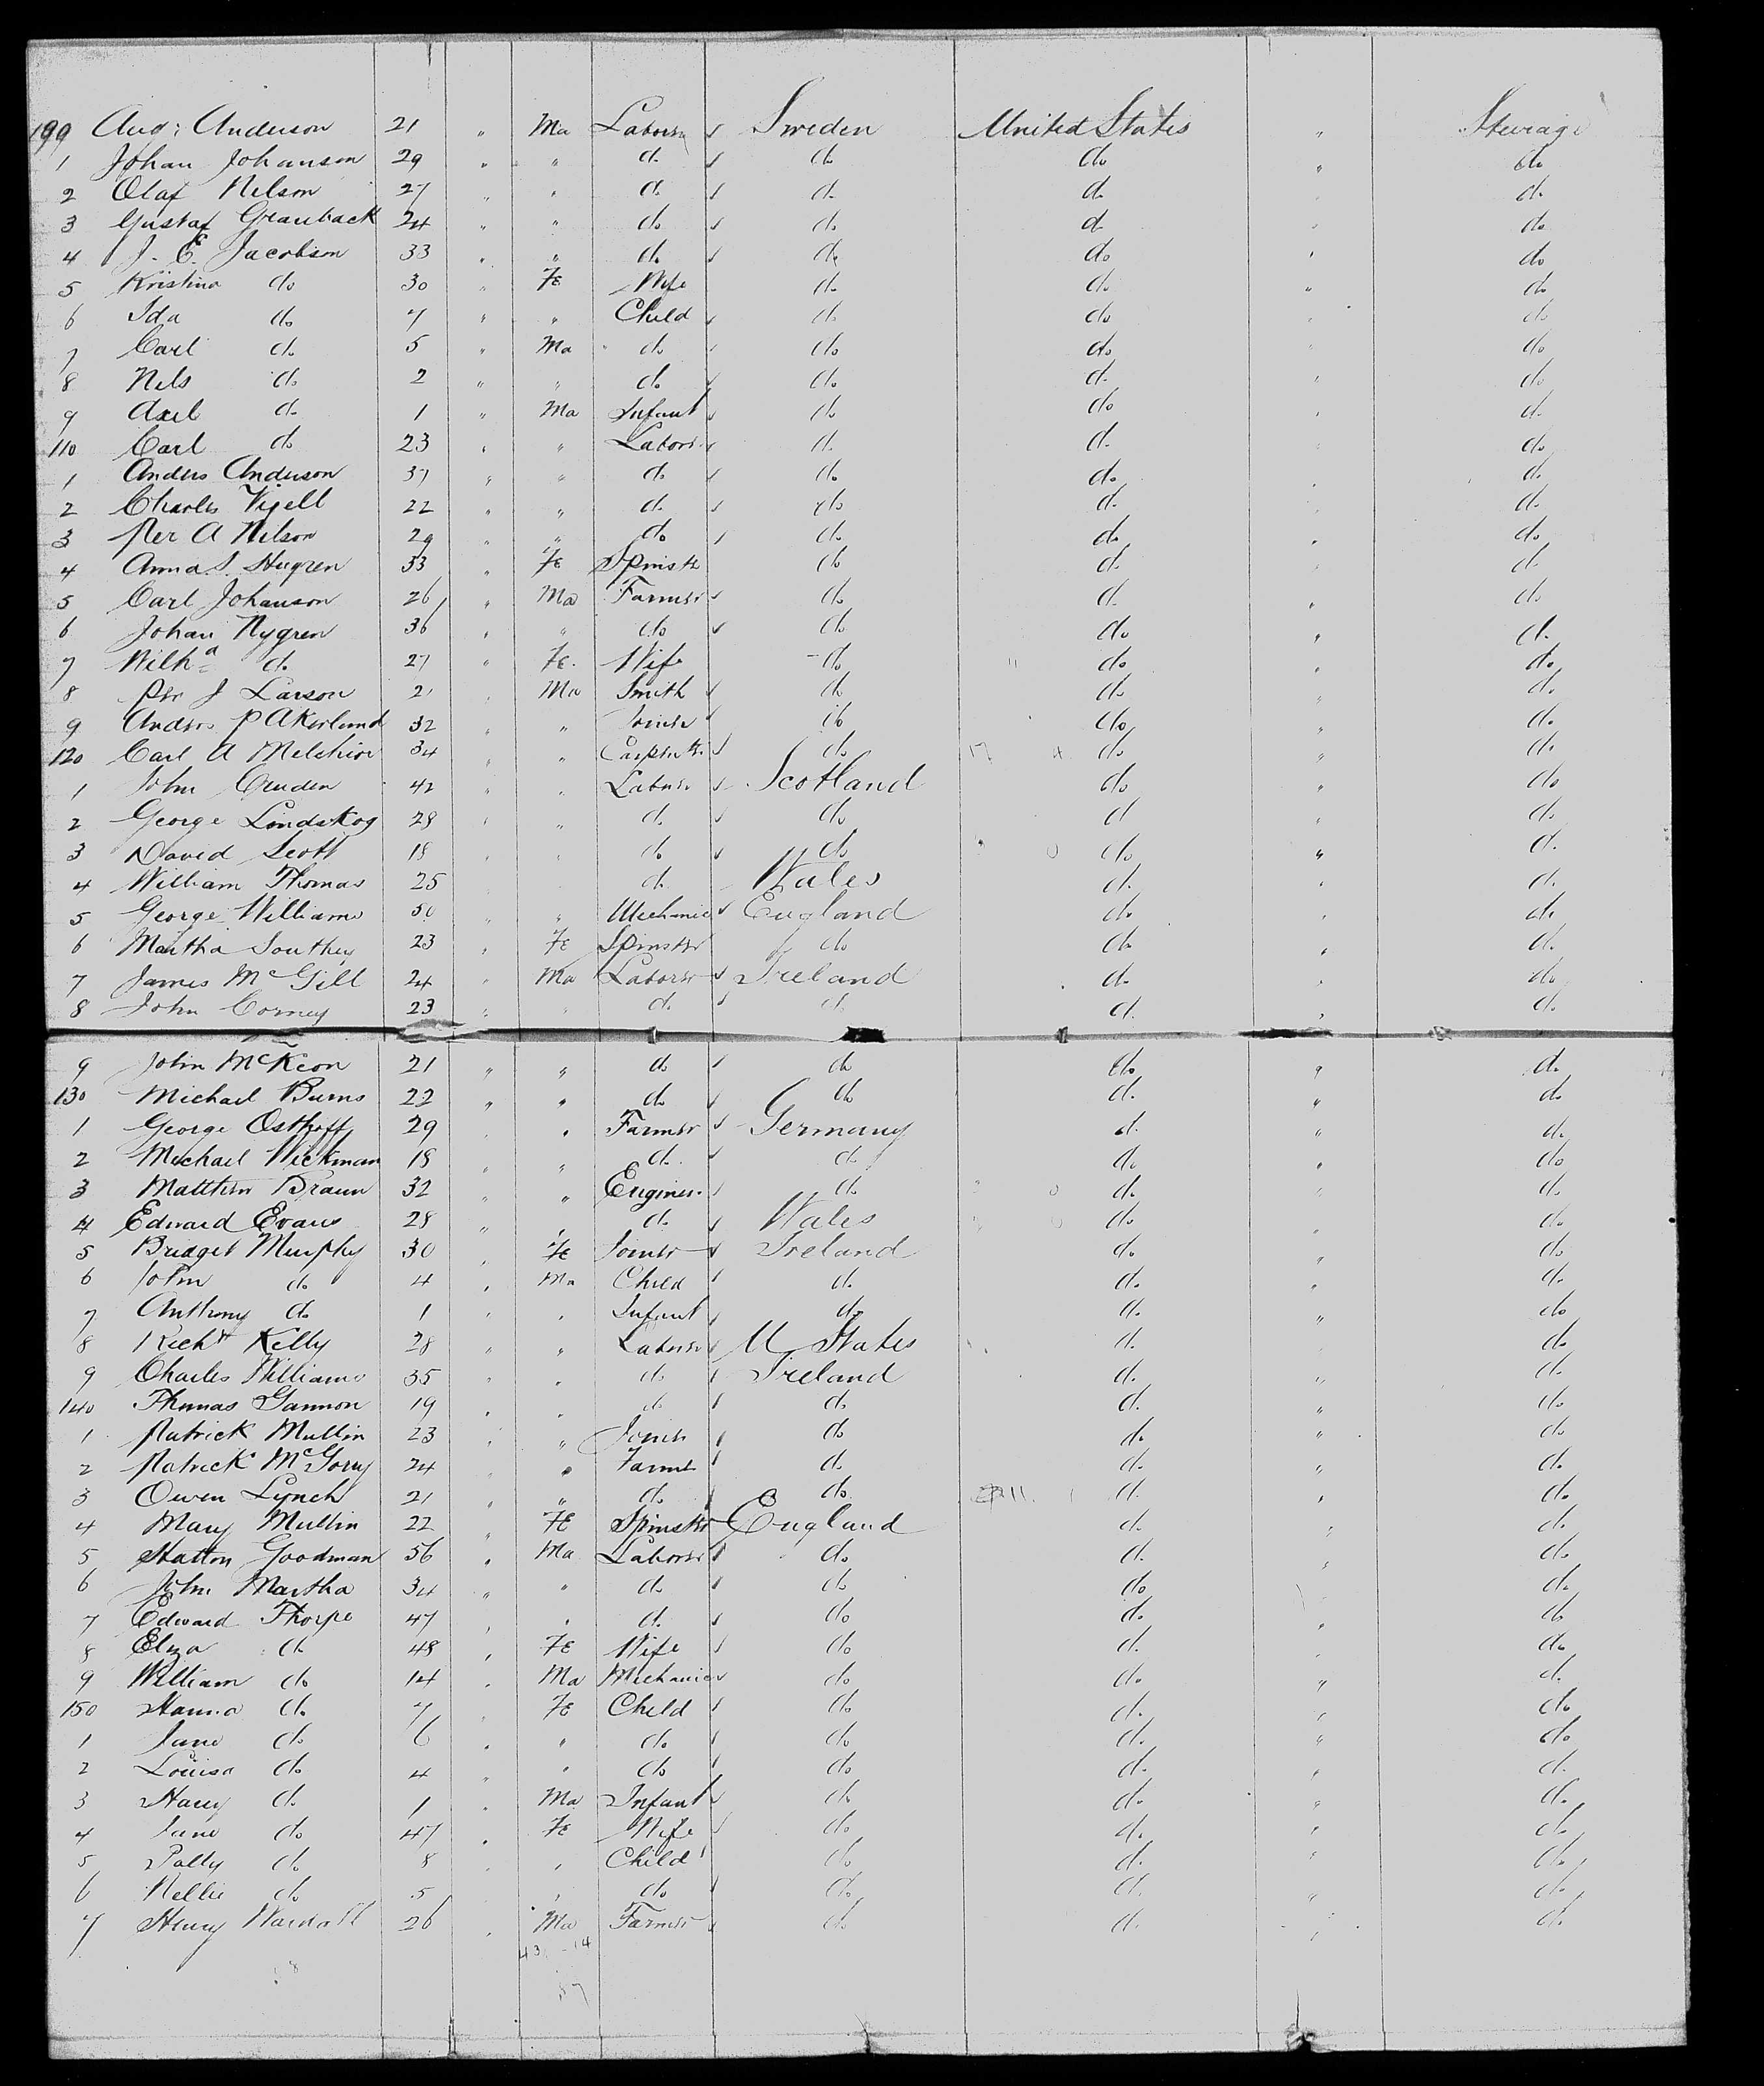 199 Aug: Anderson 21 " Ma Laborer ✓ Sweden United States " Steerage
1 Johan Johanson 29 " " do ✓ do do " do
2 Olaf Nelson 27 " " do ✓ do do " do
3 Gustaf Grauback 24 " " do ✓ do do " do
4 J. E. Jacobson 33 " " do ✓ do do " do
5 Kristina do 30 " Fe Wife do do " do
6 Ida do 7 " " Child ✓ do do " do
7 Carl do 5 " Ma do do do " do
8 Nels do 2 " " do ✓ do do " do
9 Axel do 1 " Ma Infant ✓ do do " do
110 Carl do 23 " " Labor ✓ do do " do
1 Anders Anderson 37 " " do ✓ do do " do
2 Charles Vigell 22 " " do ✓ do do " do
3 Per A Nelson 29 " " do ✓ do do " do
4 Anna S. Hugren 33 " Fe Spinster do do " do
5 Carl Johanson 26 " Ma Farmer ✓ do do " do
6 Johan Nygren 36 " " do ✓ do do " do
7 Wilha do 27 " Fe. Wife do 11 do " do
8 Per J Larson 21 " Ma Smith ✓ do do " do
9 Anders P Akerlund 32 " " Joiner ✓ do do " do
120 Carl A Melchior 34 " " Carpenter ✓ do 17 4 do " do
1 John Cruden 42 " " Laborer ✓ Scotland do " do
2 George Lindskog 28 " " do ✓ do do " do
3 David Scott 18 " " do ✓ do 0 do " do
4 William Thomas 25 do Wales do " do
5 George Williams 50 " " Mechanic ✓ England do " do
6 Martha Southey 23 " Fe Spinster do do " do
7 James McGill 24 " Ma Laborer ✓ Ireland do " do
8 John Corney 23 " " do ✓ do do " do
9 John McKeon 21 " " do ✓ do do " do
130 Michael Burns 22 " " do ✓ do do " do
1 George Osthoff 29 " " Farmer ✓ Germany do " do
2 Michael Wickman 18 " " do ✓ do do " do
3 Matthew Braun 32 " " Engineer ✓ do 0 do " do
4 Edward Evans 28 " " do ✓ Wales 0 do " do
5 Bridget Murphy 30 " Fe Joiner ✓ Ireland do " do
6 John do 4 " Ma Child ✓ do do " do
7 Anthony do 1 " " Infant ✓ do do " do
8 Richd Kelly 28 " " Laborer ✓ U States do do
9 Charles Williams 35 " " do ✓ Ireland do " do
140 Thomas Gannon 19 " " do ✓ do do " do
1 Patrick Mullin 23 " " Joiner ✓ do do " do
2 Patrick McGorry 24 " " Farmer ✓ do do " do
3 Owen Lynch 21 " " do ✓ do 11. 1 do " do
4 Mary Mullin 22 " Fe Spinster England do " do
5 Hatton Goodman 56 " Ma Laborer ✓ do do " do
6 John Martha 34 " " do ✓ do do do
7 Edward Thorpe 47 " " do ✓ do do " do
8 Eliza do 48 " Fe Wife ✓ do do " do
9 William do 14 " Ma Mechanic ✓ do do " do
150 Hanna do 7 " Fe Child ✓ do do " do
1 Jane do 6 " " do ✓ do do " do
2 Louisa do 4 " " do ✓ do do " do
3 Harry do 1 " Ma Infant ✓ do do " do
4 Jane do 47 " Fe Wife ✓ do do " do
5 Polly do 8 " " Child ✓ do do " do
6 Nellie do 5 " do ✓ do do " do
7 Henry 26 " Ma Farmer ✓ do do " do
43 - 14
57